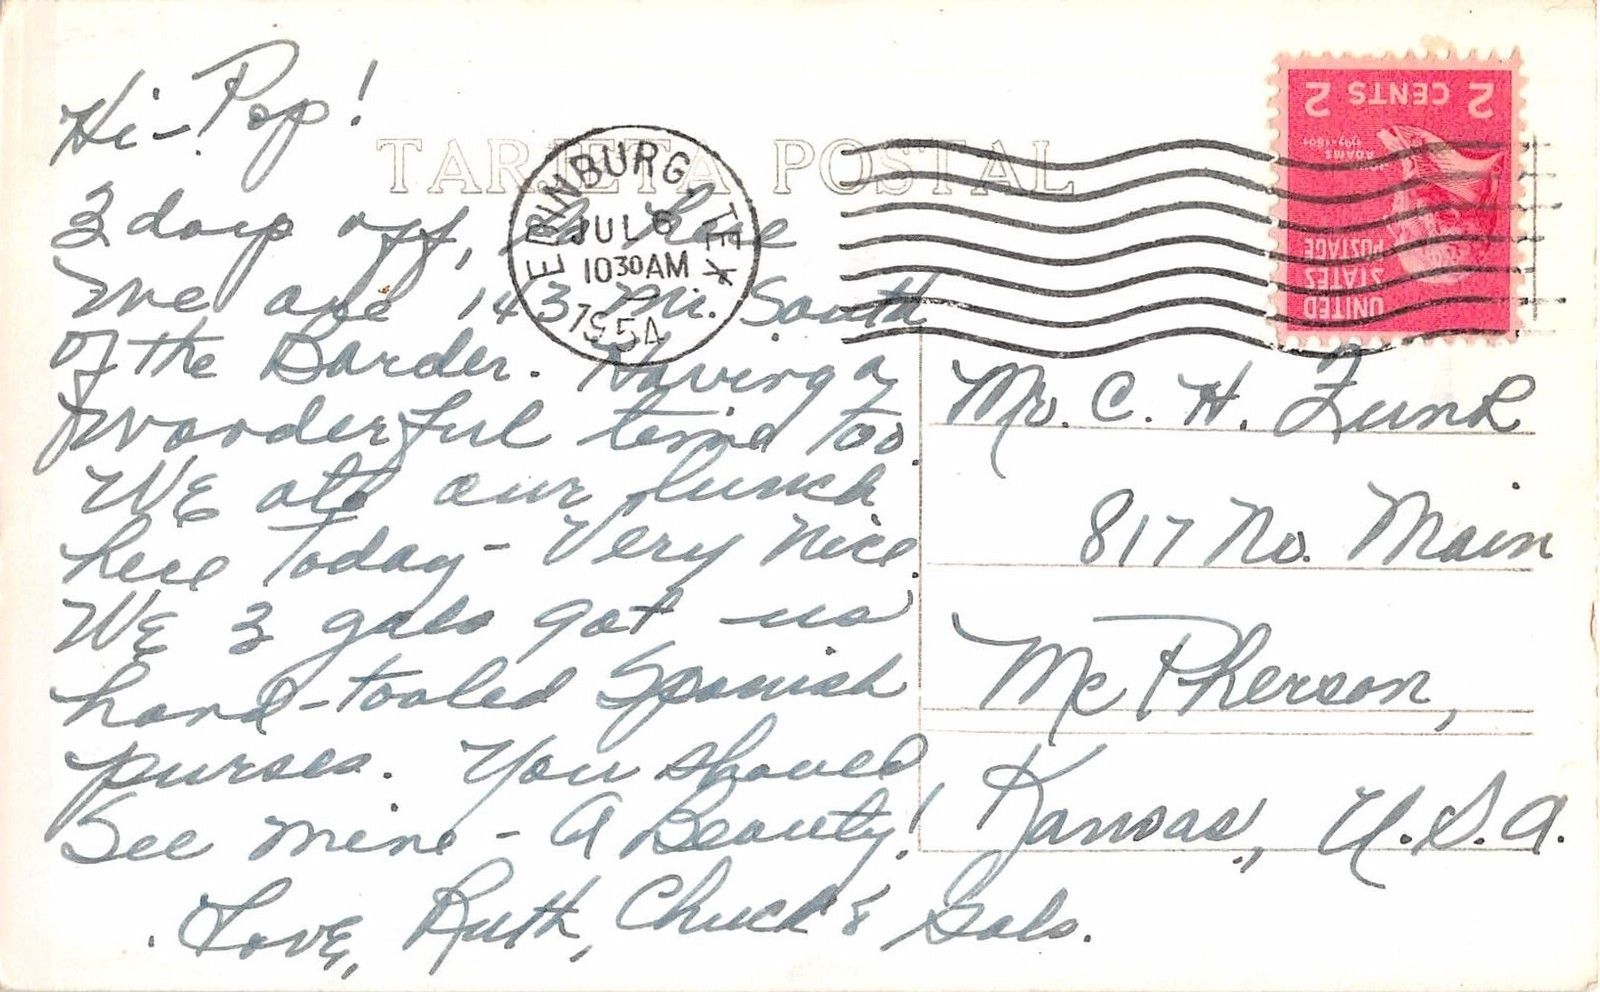 Hi - Pop!
TARJETA POSTAL
3 days off, & here
We are 143 Mi. South
of the Border. Having a
wonderful time too.
We ate our lunch
here Today - Very Nice.
We 3 gals got us
hand-tooled Spanish
purses. You should
See mine - A Beauty!
Love, Ruth, Chuck & Gals.
EDINBURG, TEX
JUL 6
10 30 AM
1954
2 CENTS 2
JOHN
ADAMS
1797-1801
UNITED
STATES
POSTAGE
Mr. C. H. Funk
817 No. Main
McPherson,
Kansas, U.S.A.